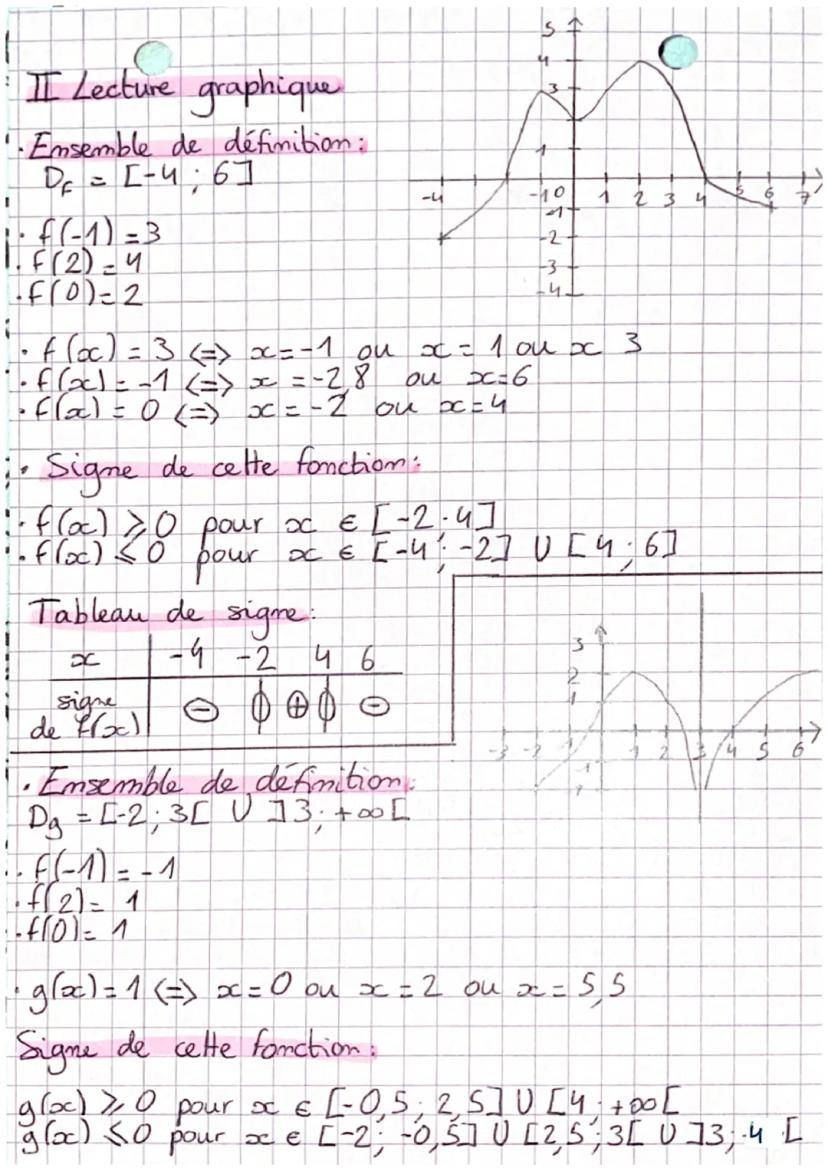 II Lecture graphique
. Ensemble de définition :
Df = [-4 ; 6]
. f(-1) = 3
. f(2) = 4
. f(0) = 2
5
4
3
1
-4 -1 0 1 2 3 4 5 6 7
-1
-2
-3
-4
. f(x) = 3 <=> x = -1 ou x = 1 ou x 3
. f(x) = -1 <=> x = -2,8 ou x = 6
. f(x) = 0 <=> x = -2 ou x = 4
. Signe de cette fonction :
. f(x) ⩾ 0 pour x ∈ [-2 . 4]
. f(x) ⩽ 0 pour x ∈ [-4 ; -2] U [4 ; 6]
Tableau de signe :
x -4 -2 4 6
signe de f(x) ⊖ 0 ⊕ 0 ⊖
3
2
1
-3 -2 -1 1 2 3 4 5 6
-1
. Ensemble de définition :
Dg = [-2 ; 3[ U ]3 ; +∞[
. f(-1) = -1
. f(2) = 1
. f(0) = 1
. g(x) = 1 <=> x = 0 ou x = 2 ou x = 5,5
Signe de cette fonction :
g(x) ⩾ 0 pour x ∈ [-0,5 ; 2,5] U [4 ; +∞[
g(x) ⩽ 0 pour x ∈ [-2 ; -0,5] U [2,5 ; 3[ U ]3 ; 4 [